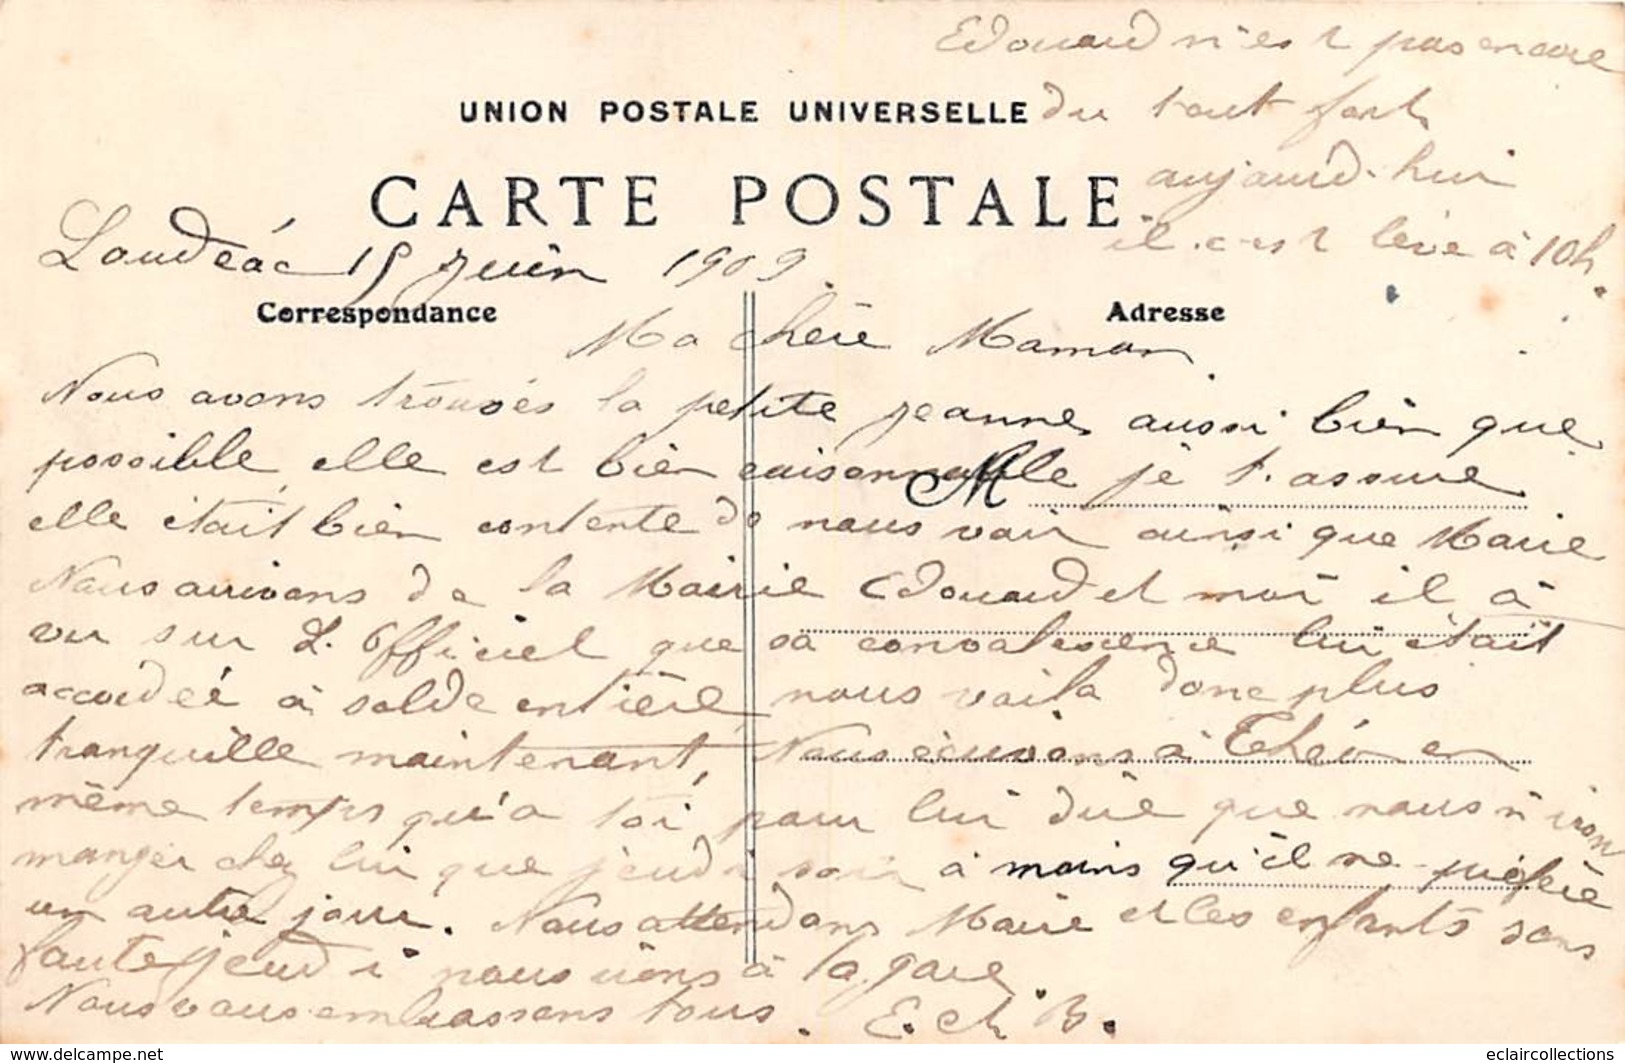 Edouard n'est pas encore
du tout fort
aujourd'hui
il c'est levé à 10h.
UNION POSTALE UNIVERSELLE
CARTE POSTALE
Loudéac 15 Juin 1909.
Correspondance
Adresse
Ma chère Maman
M
Nous avons trouvés la petite jeanne aussi bien que
possible, elle est bien raisonnable je t'assure
elle était bien contente de nous voir ainsi que Marie
Nous arrivons de la Mairie Edouard et moi il à
vu sur L'Officiel que sa convalescence lui était
accordée à solde entière nous voila donc plus
tranquille maintenant, Nous écrivons à Théo en
même temps qu'a toi pour lui dire que nous n'irons
manger chez lui que jeudi soir à moins qu'il ne préfère
un autre jour. Nous attendons Marie et les enfants sans
faute jeudi nous irons à la gare.
Nous vous embrassons tous. E. et B.
www.delcampe.net
eclaircollections